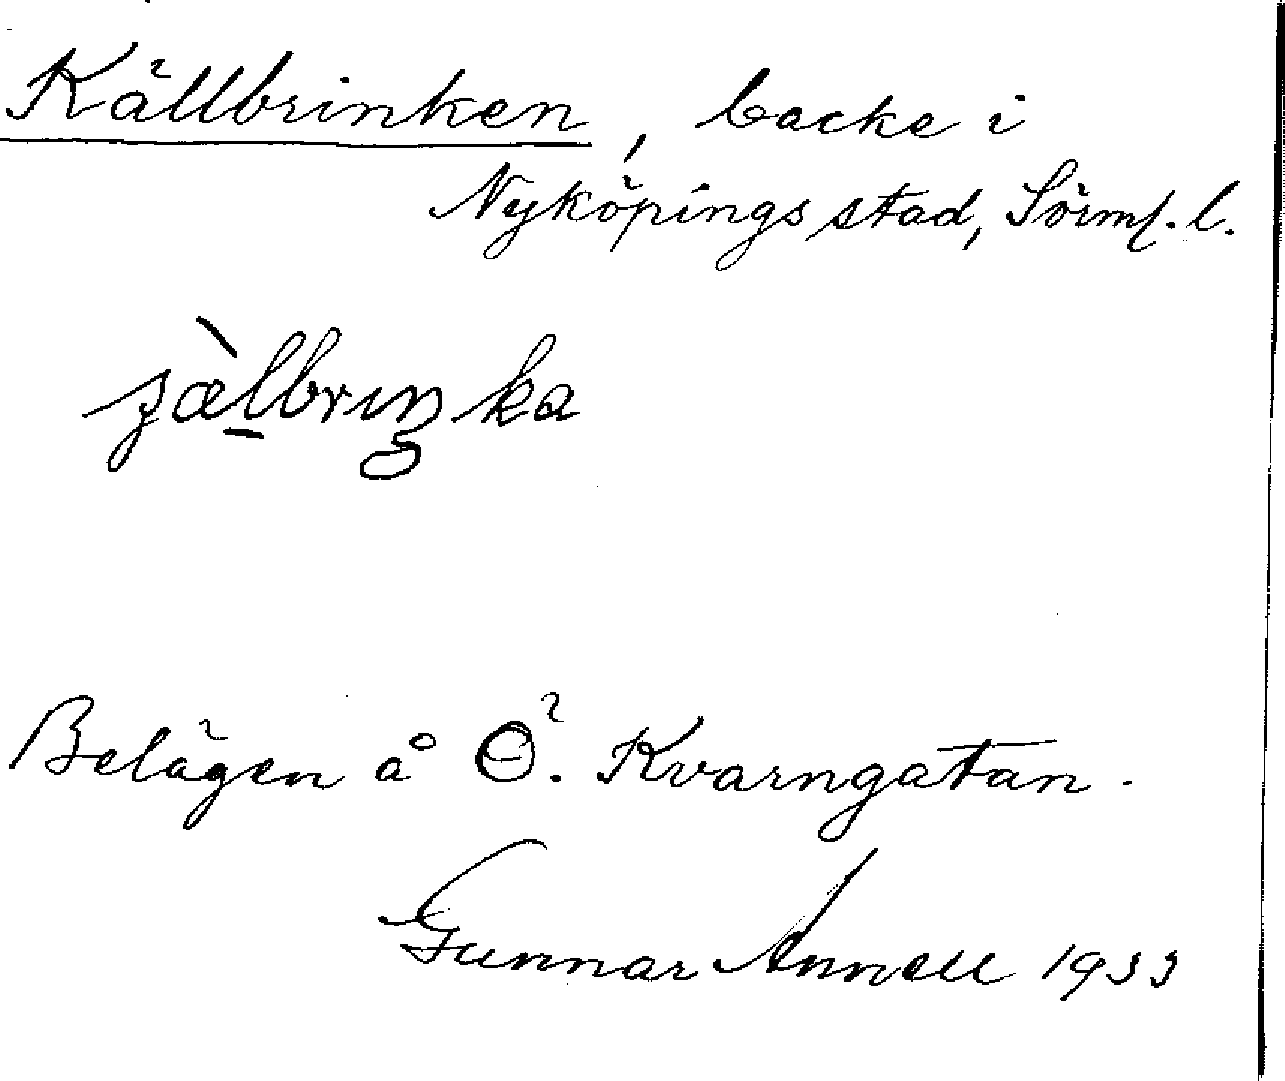 Källbrinken, backe i
Nyköpings stad, Sörml. l.
Belägen å Ö. Kvarngatan.
Gunnar Annell 1933